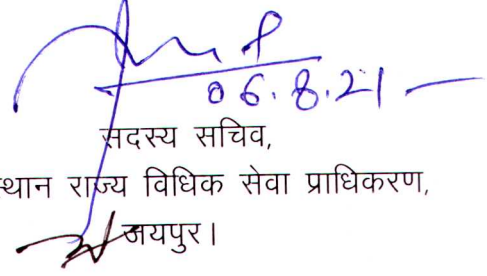 06.8.21
सदस्य सचिव,
स्थान राज्य विधिक सेवा प्राधिकरण,
जयपुर।